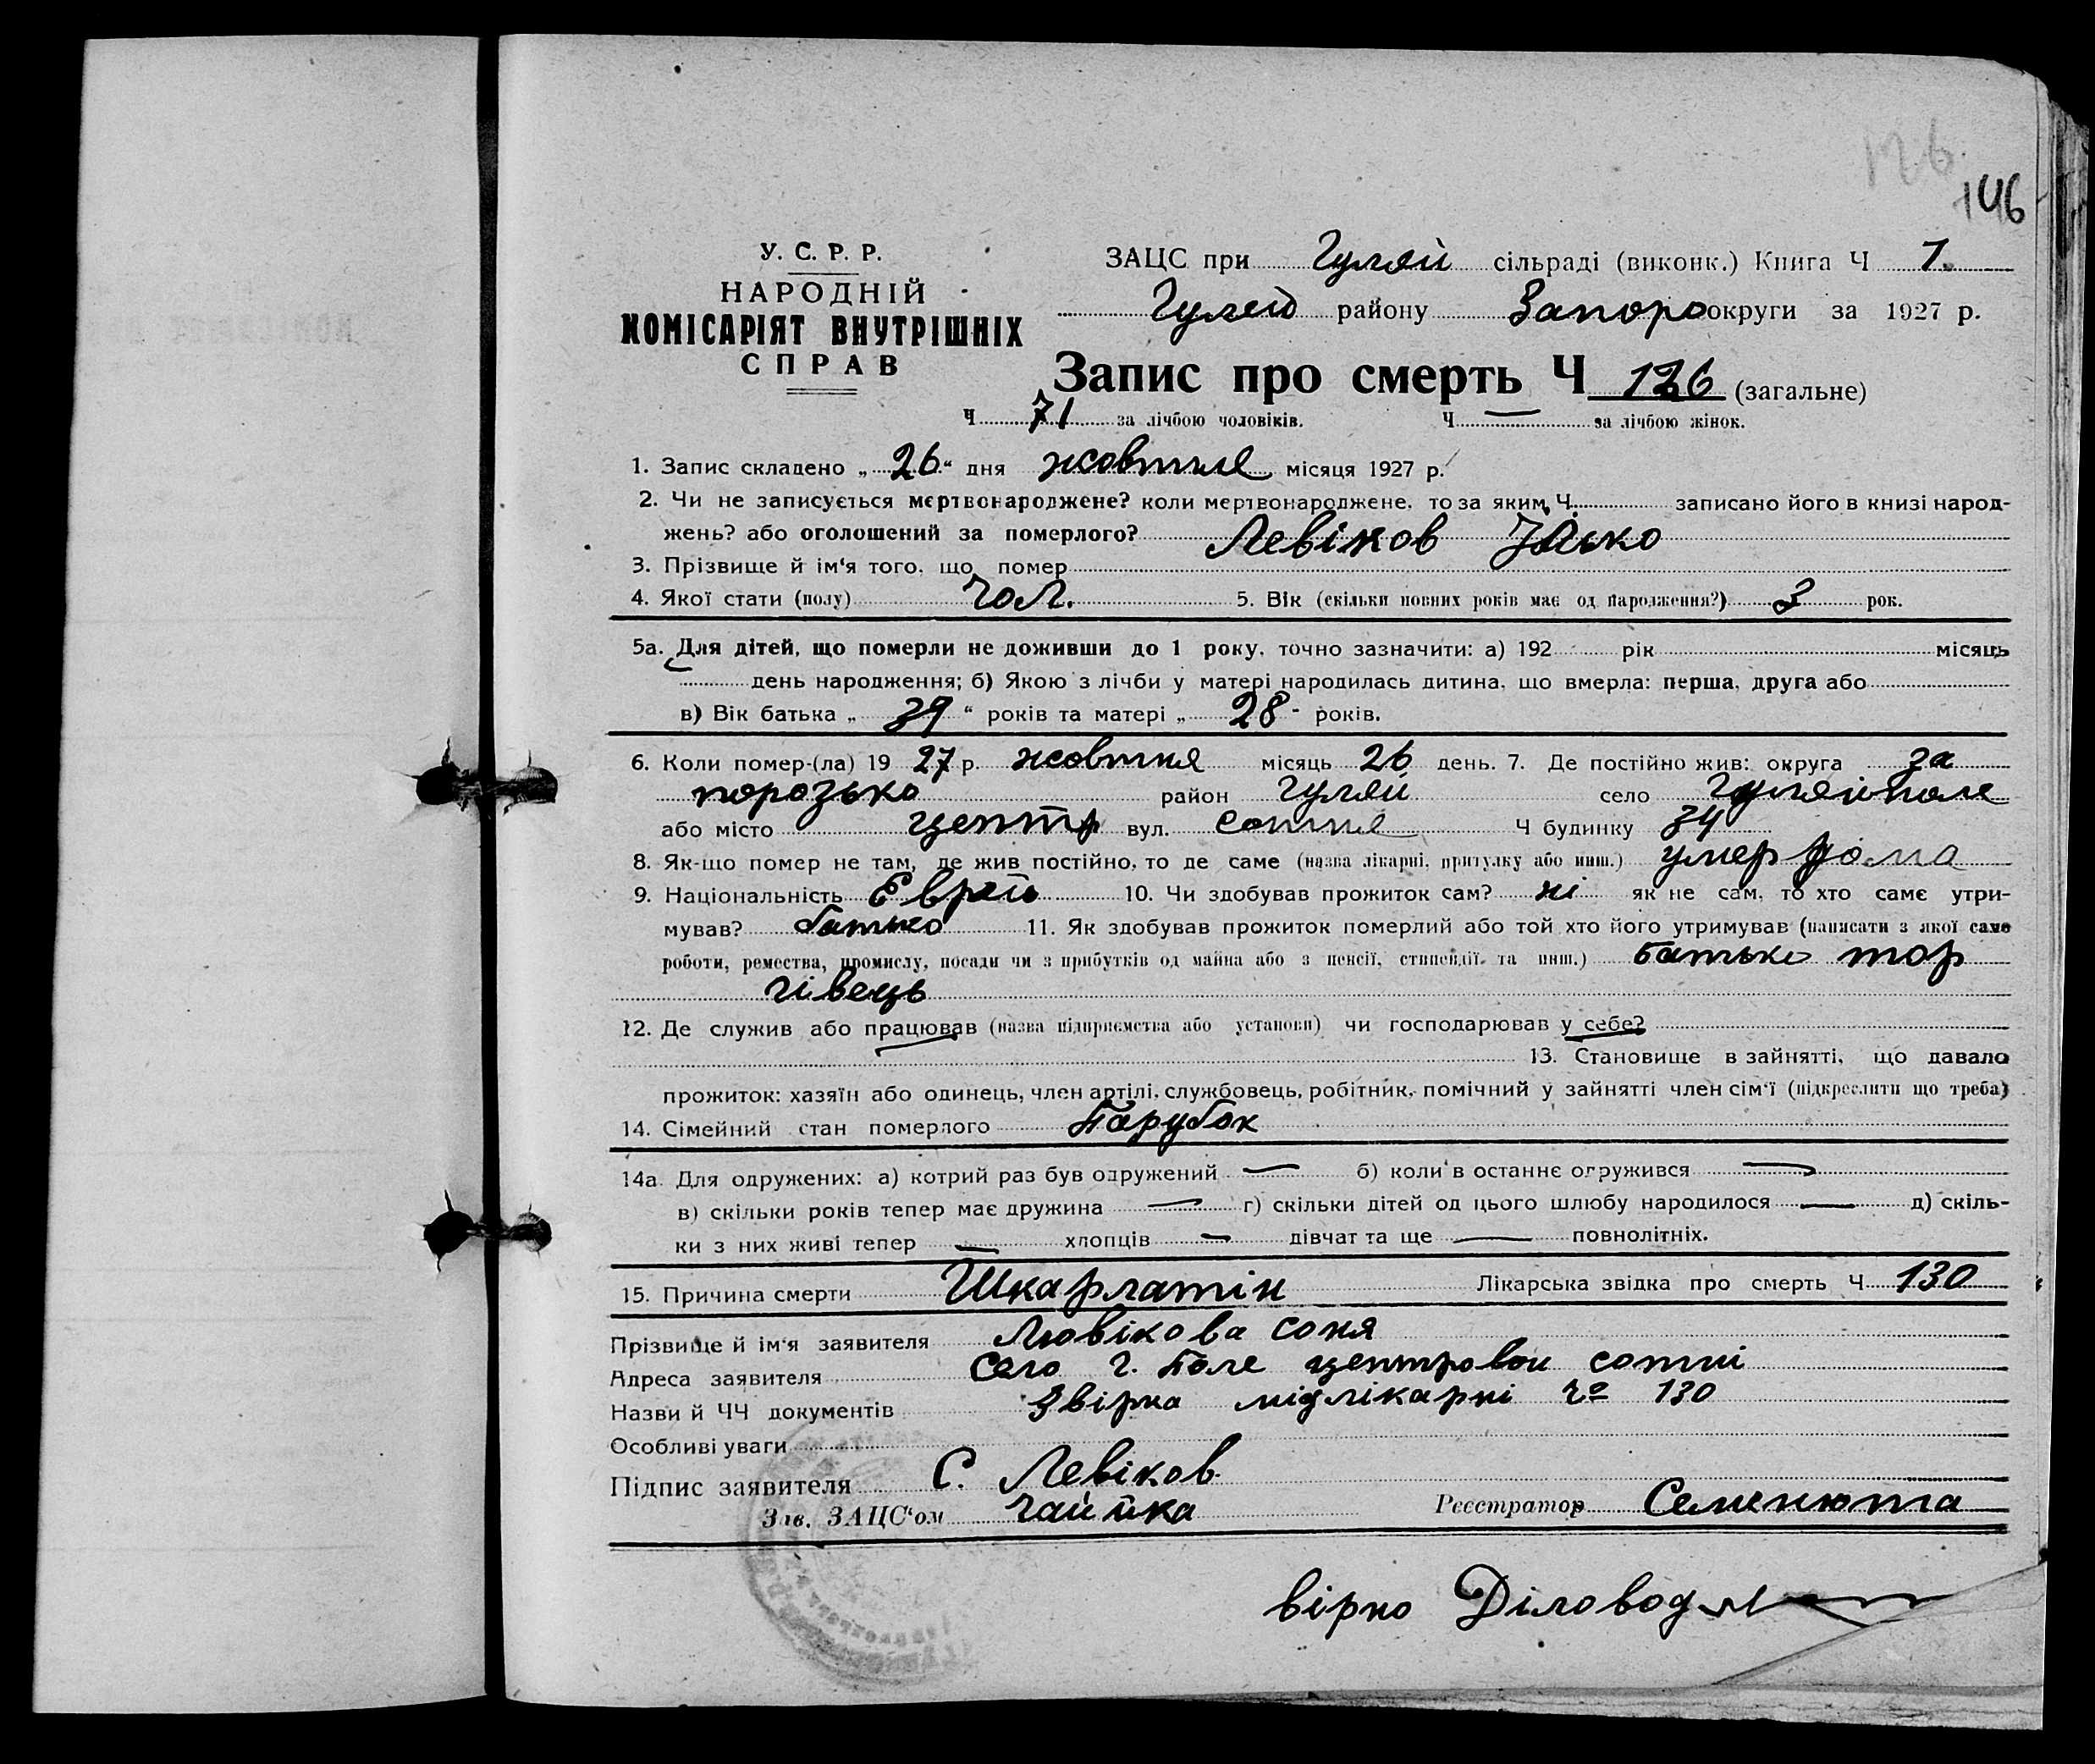 126
146
У. С. Р. Р.
НАРОДНІЙ
КОМІСАРІЯТ ВНУТРІШНІХ
СПРАВ
ЗАЦС при Гуляй сільраді (виконк.) Книга Ч 1.
Гуляй району Запоро округи за 1927 р.
Запис про смерть Ч 126 (загальне)
Ч 71 за лічбою чоловіків. Ч — за лічбою жінок.
1. Запис складено „26“ дня жовтня місяця 1927 р.
2. Чи не записується мертвонароджене? коли мертвонароджене, то за яким Ч. записано його в книзі народ-
жень? або оголошений за померлого?
Левіков
3. Прізвище й ім'я того, що помер
4. Якої стати (полу) чол. 5. Вік (скільки повних років має од народження?) 3 рок.
5а. Для дітей, що померли не доживши до 1 року, точно зазначити: а) 192 рік місяць
день народження; б) Якою з лічби у матері народилась дитина, що вмерла: перша, друга або
в) Вік батька „39“ років та матері „28- років.
6. Коли помер-(ла) 1927 р. жовтня місяць 26 день. 7. Де постійно жив: округа за
порозько район Гуляй село Гуляйполе
або місто центр вул. сотня Ч будинку 34
8. Як-що помер не там, де жив постійно, то де саме (назва лікарні, притулку або инш.) умер дома
9. Національність Еврей 10. Чи здобував прожиток сам? ні як не сам, то хто саме утри-
мував? батько 11. Як здобував прожиток померлий або той хто його утримував (написати з якої саме
роботи, ремества, промислу, посади чи з прибутків од майна або з пенсії, стипендії та инш.) батько тор
гівець
12. Де служив або працював (назва підприємства або установи) чи господарював у себе?
13. Становище в зайнятті, що давало
прожиток: хазяїн або одинець, член артілі, службовець, робітник, помічний у зайнятті член сім'ї (підкреслити що треба)
14. Сімейний стан померлого Парубок
14а. Для одружених: а) котрий раз був одружений — б) коли в останнє одружився —
в) скільки років тепер має дружина — г) скільки дітей од цього шлюбу народилося — д) скіль-
ки з них живі тепер — хлопців — дівчат та ще — повнолітніх.
15. Причина смерти Шкарлатін Лікарська звідка про смерть Ч 130
Прізвище й ім'я заявителя Лювікова Соня
Адреса заявителя Село Г. Поле центровои сотні
Назви й ЧЧ документів Звірка лікарні 130
Особливі уваги
Підпис заявителя С. Левіков.
Зав. ЗАЦС'ом Чайка Реєстратор Семенюта
вірно Діловод